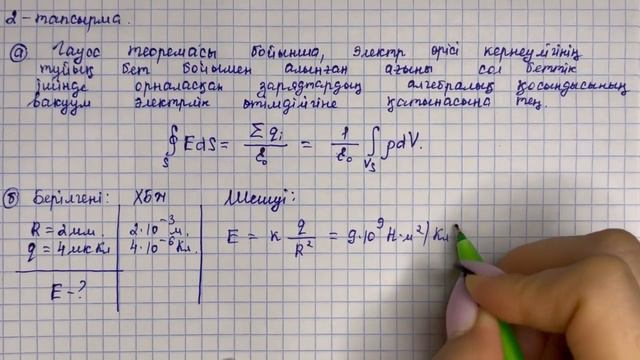 2-тапсырма.
а) Гаусс теоремасы бойынша, электр өрісі кернеулігінің
тұйық бет бойымен алынған ағыны сол беттің
ішінде орналасқан зарядтардың алгебралық қосындысының
вакуум электрлік өтімділігіне қатынасына тең.
∮_S E dS = Σqᵢ / ε₀ = 1/ε₀ ∫_{V_S} ρdV.
б) Берілгені: ХБЖ Шешуі:
R = 2 мм. 2·10⁻³ м. E = k q/R² = 9·10⁹ Н·м²/Кл
q = 4 мк Кл 4·10⁻⁶ Кл.
E - ?